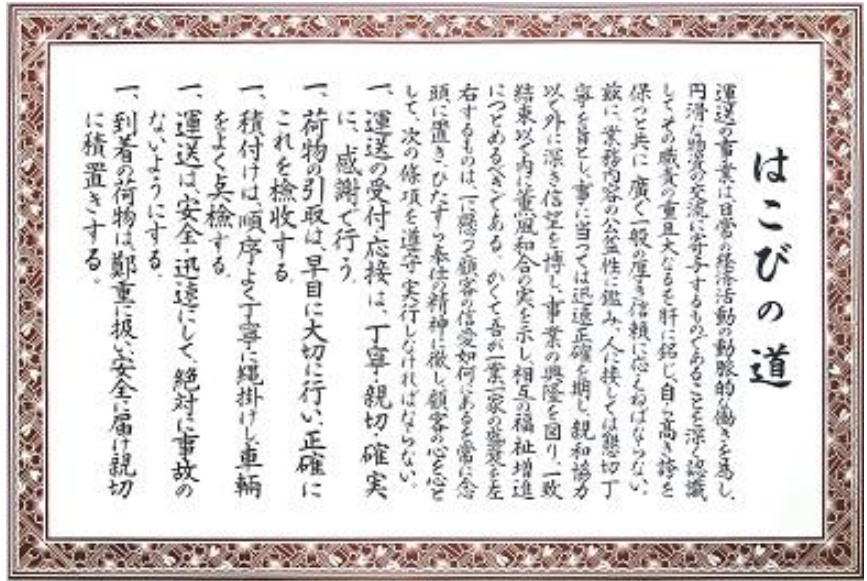 はこびの道
運送の事業は日常の経済活動の動脈的な働きを為し、
円滑な物流の交流に寄与するものであることを深く認識
してその職責の重且大なるを肝に銘じ、自ら高き誇を
保つと共に広く一般の厚き信頼に応えねばならない。
玆に、業務内容の公益性に鑑み、人に接しては懇切丁
寧を旨とし、事に当っては迅速正確を期し、親和協力
以て外に深き信望を博し、事業の興隆を図り、一致
結束以て内に薫風和合の実を示し、相互の福祉増進
につとめるべきである。かくて吾が一業一家の盛衰を左
右するものは、一に懸つて顧客の信愛如何にあるを常に念
頭に置き、ひたすら奉仕の精神に徹し、顧客の心を心と
して、次の條項を遵守、実行しなければならない。
一、運送の受付応接は、丁寧・親切・確実
に、感謝で行う。
一、荷物の引取は、早目に大切に行い、正確に
これを検収する。
一、積付けは、順序よく丁寧に縄掛けし、車輌
をよく点検する。
一、運送は、安全・迅速にして、絶対に事故の
ないようにする。
一、到着の荷物は、鄭重に扱い、安全に届け親切
に積置きする。